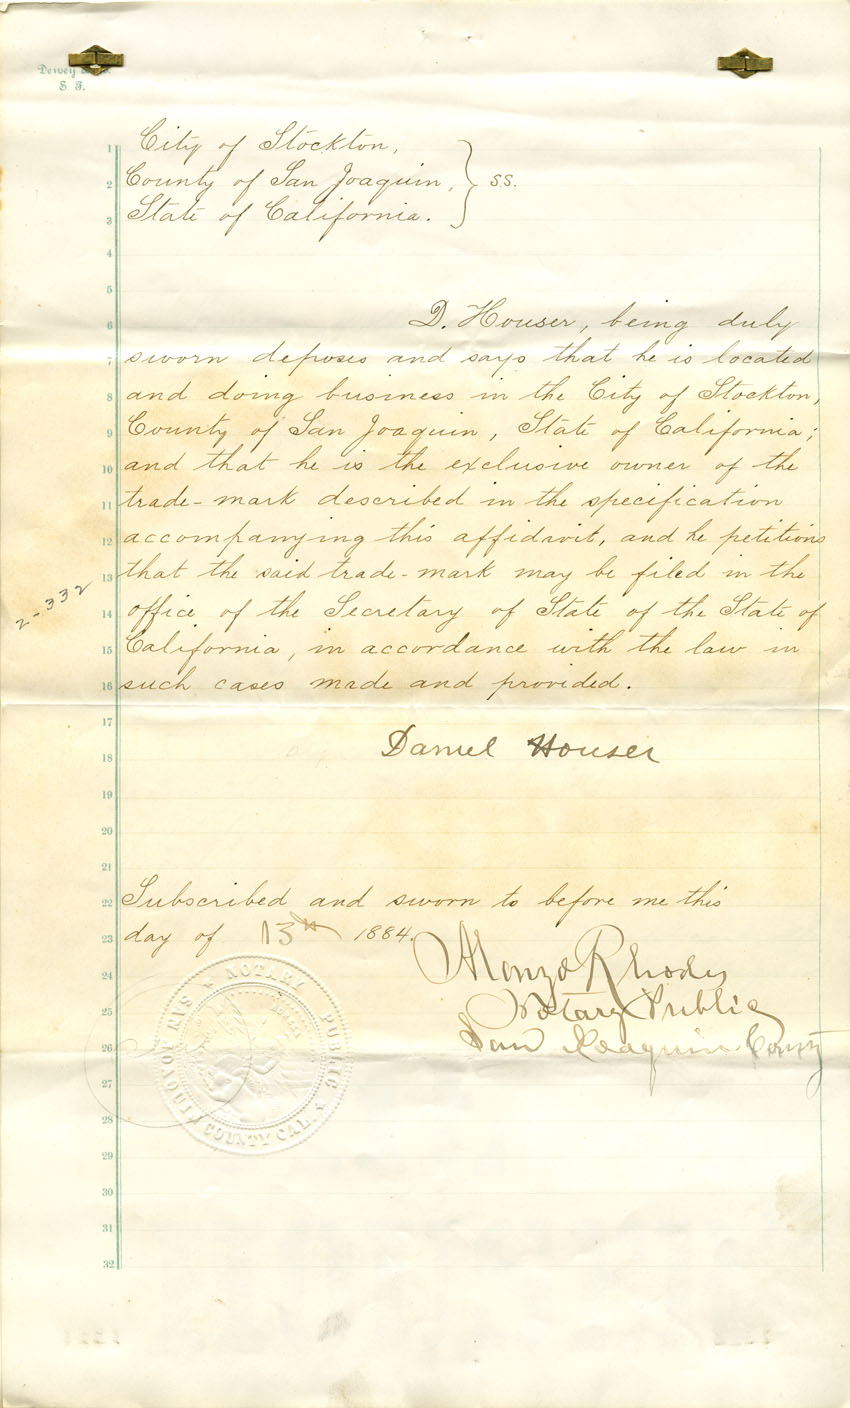 Dewey & Co.
S. F.
1 City of Stockton,
2 County of San Joaquin, } S.S.
3 State of California.
4
5
6 D. Houser, being duly
7 sworn deposes and says that he is located
8 and doing business in the City of Stockton,
9 County of San Joaquin, State of California;
10 and that he is the exclusive owner of the
11 trade-mark described in the specification
12 accompanying this affidavit, and he petitions
13 that the said trade-mark may be filed in the
2-332
14 office of the Secretary of State of the State of
15 California, in accordance with the law in
16 such cases made and provided.
17
18 Daniel Houser
19
20
21
22 Subscribed and sworn to before me this
23 day of 13th 1884.
24 Alonzo Rhodes
25 Notary Public
26 San Joaquin County
27
28
29
30
31
32
NOTARY PUBLIC
SAN JOAQUIN COUNTY CAL.